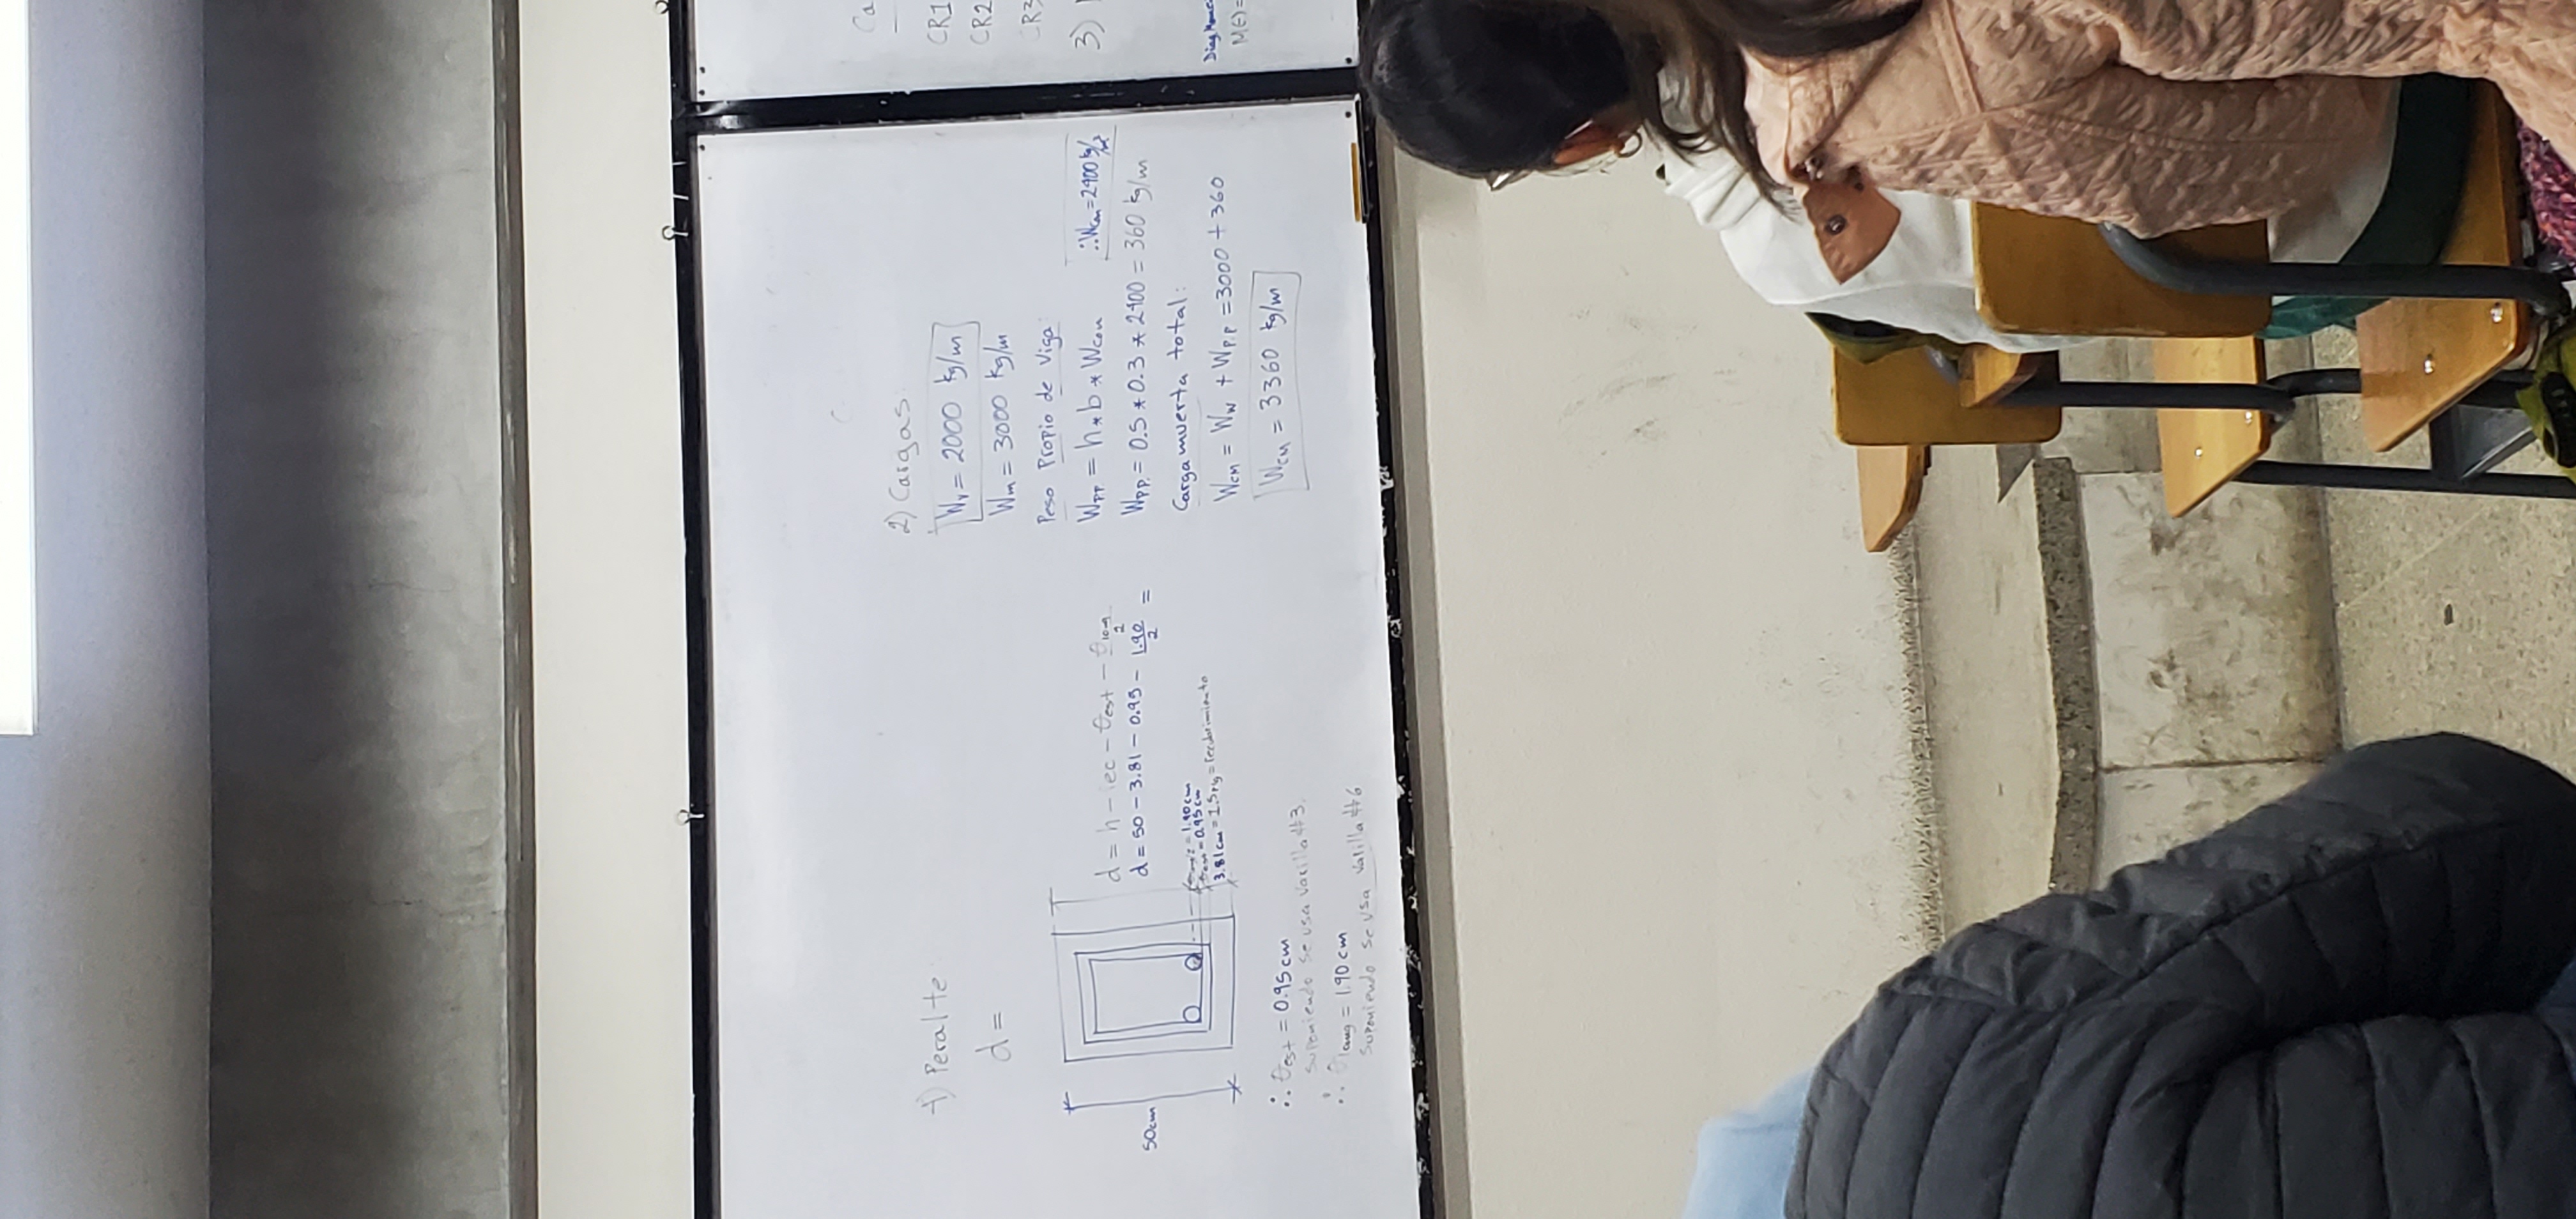 1) Peralte
d =
50cm
d = h - rec - θest - θlong/2
d = 50 - 3.81 - 0.95 - 1.90/2 =
= 1.90cm
= 0.95cm
3.81cm = 1.5 Plg = recubrimiento
∴ θest = 0.95 cm
suponiendo se usa varilla #3.
∴ θlong = 1.90 cm
suponiendo se usa varilla #6
2) Cargas:
Wv = 2000 kg/m
Wm = 3000 kg/m
Peso Propio de Viga:
WPP = h * b * Wcon
∴ Wcon = 2400 kg/m³
WPP = 0.5 * 0.3 * 2400 = 360 kg/m
Carga muerta total:
Wcm = Wm + WP.P = 3000 + 360
Wcm = 3360 kg/m
Ca
CR1
CR2
CR3
3)
M(+)=